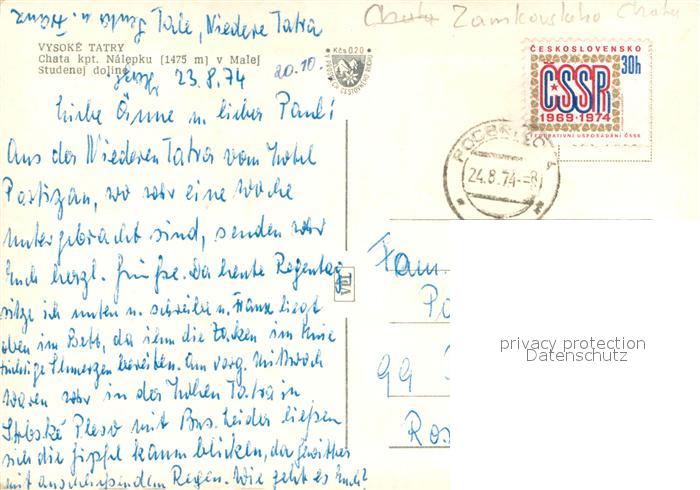 Jenka u. Franz
Tale, Niedere Tatra
VYSOKÉ TATRY
Chata kpt. Nálepku [1475 m] v Malej
Studenej doline
23.8.74
20.10.
Kčs 0,20
Chata Zamkovského Chata
ČESKOSLOVENSKO
30h
ČSSR
1969-1974
FEDERATIVNÍ USPOŘÁDÁNÍ ČSSR
24.8.74-8
Liebe Änne u. lieber Paul!
Aus der Niederen Tatra vom Hotel
Partizan, wo wir eine Woche
untergebracht sind, senden wir
Euch herzl. Grüße. Da heute Regentag
sitze ich unten u. schreibe u. Franz liegt
oben im Bett, da ihm die Zacken im Knie
tüchtige Schmerzen bereiten. Am vorg. Mittwoch
waren wir in der Hohen Tatra in
Štrbské Pleso mit Bus. Leider ließen
sich die Gipfel kaum blicken, da Gewitter
mit anschließendem Regen. Wie geht es Euch?
Fam.
99
Ros
privacy protection
Datenschutz